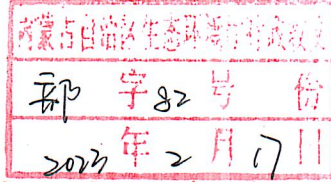 内蒙古自治区生态环境厅行政收文
部 字 82 号 份
2023 年 2 月 17 日